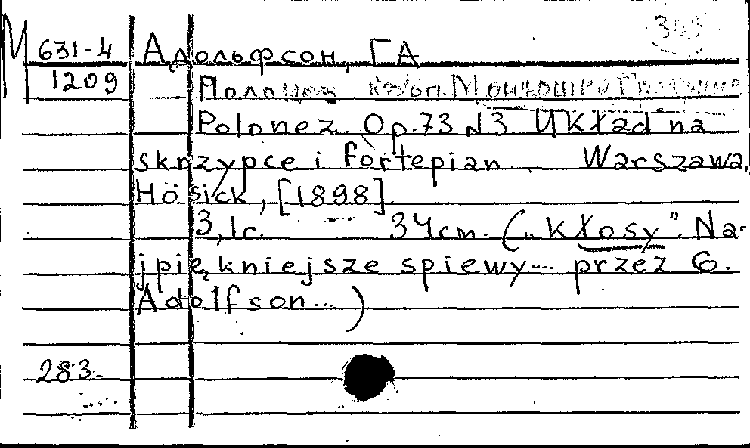 М 631-4 Адольфсон, ГА
1209
Polonez. Op. 73 N3 Układ na
skrzypce i fortepian. Warszawa,
Hösick, [1898].
3,1c. 34cm. („Kłosy”. Na-
jpiękniejsze spiewy... przez G.
Adolfson...)
283.